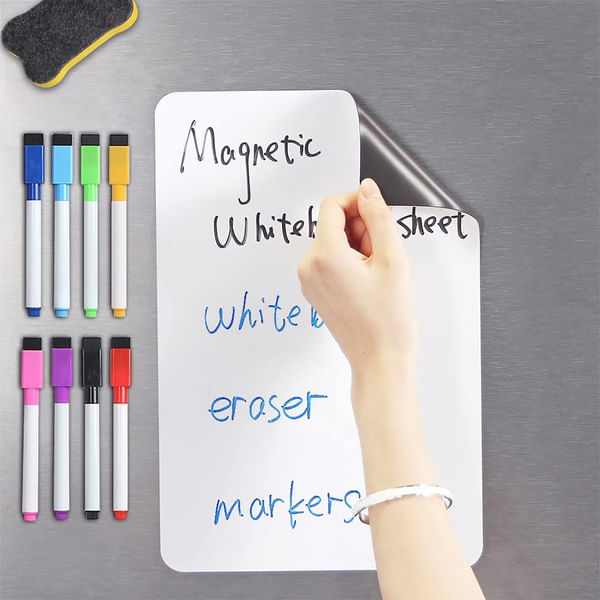 Magnetic
Whiteb sheet
whiteb
eraser
markers